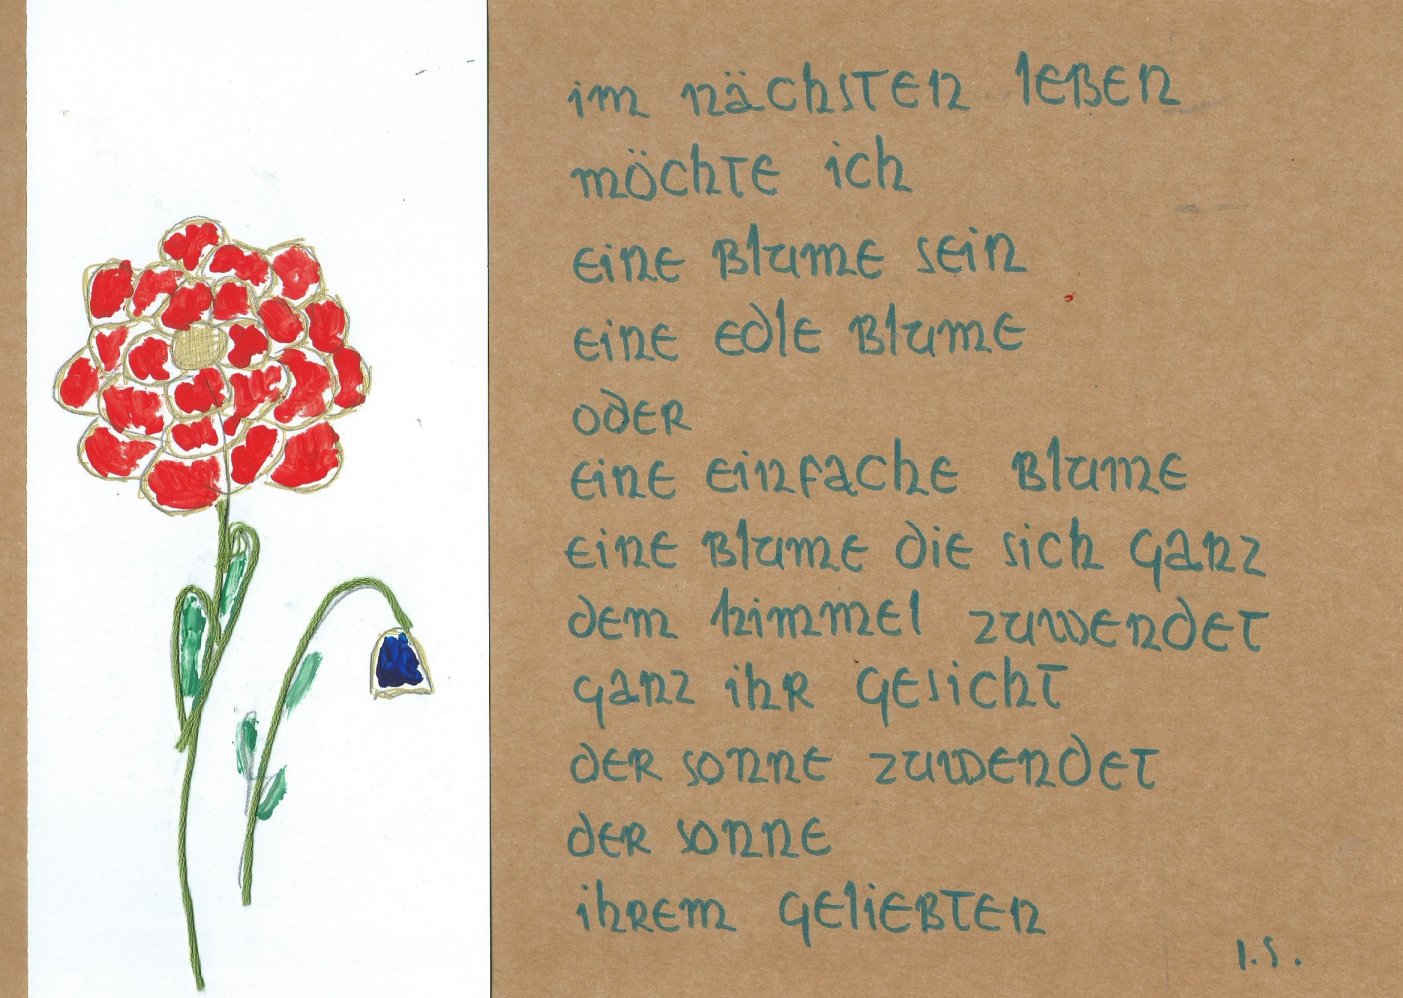 im nächsten leben
möchte ich
eine Blume sein
eine edle Blume
oder
eine einfache Blume
eine Blume die sich ganz
dem himmel zuwendet
ganz ihr gesicht
der sonne zuwendet
der sonne
ihrem geliebten
I.S.